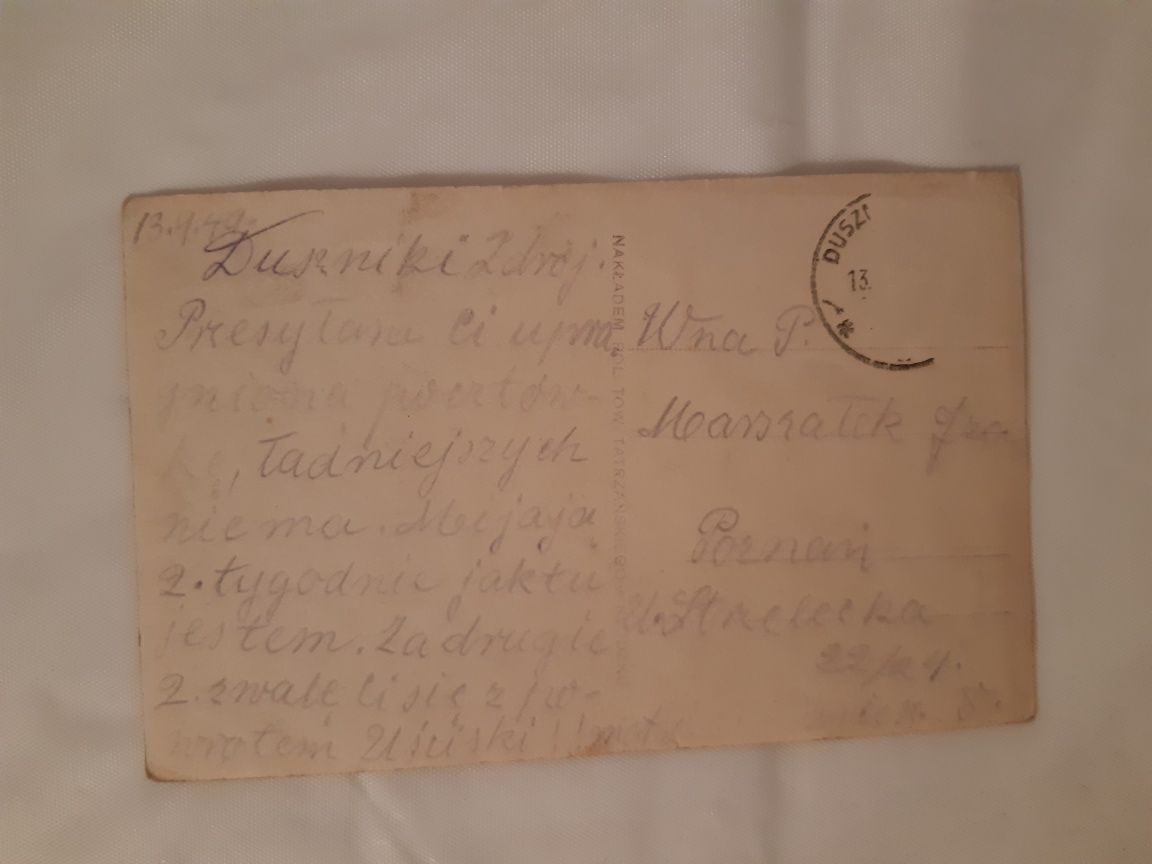 13.4.49.
Duszniki Zdrój.
Przesyłam Ci upra
gnioną pocztów-
kę, ładniejszych
niema. Mijają
2. tygodnie jak tu
jestem. Za drugie
2. zwalę Ci się z po-
wrotem Uściski
NAKŁADEM POL. TOW. TATRZAŃSKIEGO
DUSZN
13.
Wna P.
Marszałek
Poznań
Ul. Strzelecka
22/24.